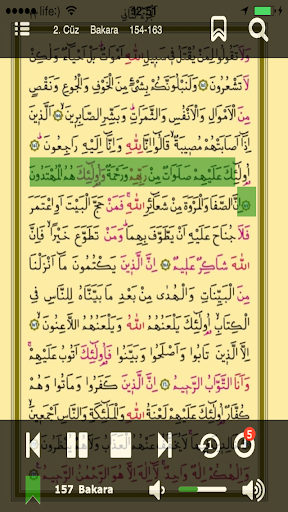 life:)
2. Cüz Bakara 154-163
وَلَا تَقُولُوا لِمَنْ يُقْتَلُ فِي سَبِيلِ اللّٰهِ اَمْوَاتٌ بَلْ اَحْيَاءٌ وَلٰكِنْ لَا
تَشْعُرُونَ وَلَنَبْلُوَنَّكُمْ بِشَيْءٍ مِنَ الْخَوْفِ وَالْجُوعِ وَنَقْصٍ
مِنَ الْاَمْوَالِ وَالْاَنْفُسِ وَالثَّمَرَاتِ وَبَشِّرِ الصَّابِرِينَ اَلَّذِينَ
اِذَا اَصَابَتْهُمْ مُصِيبَةٌ قَالُوا اِنَّا لِلّٰهِ وَاِنَّا اِلَيْهِ رَاجِعُونَ
اُولٰئِكَ عَلَيْهِمْ صَلَوَاتٌ مِنْ رَبِّهِمْ وَرَحْمَةٌ وَاُولٰئِكَ هُمُ الْمُهْتَدُونَ
اِنَّ الصَّفَا وَالْمَرْوَةَ مِنْ شَعَائِرِ اللّٰهِ فَمَنْ حَجَّ الْبَيْتَ اَوِ اعْتَمَرَ
فَلَا جُنَاحَ عَلَيْهِ اَنْ يَطَّوَّفَ بِهِمَا وَمَنْ تَطَوَّعَ خَيْرًا فَاِنَّ
اللّٰهَ شَاكِرٌ عَلِيمٌ اِنَّ الَّذِينَ يَكْتُمُونَ مَا اَنْزَلْنَا
مِنَ الْبَيِّنَاتِ وَالْهُدٰى مِنْ بَعْدِ مَا بَيَّنَّاهُ لِلنَّاسِ
فِي الْكِتَابِ اُولٰئِكَ يَلْعَنُهُمُ اللّٰهُ وَيَلْعَنُهُمُ اللَّاعِنُونَ
اِلَّا الَّذِينَ تَابُوا وَاَصْلَحُوا وَبَيَّنُوا فَاُولٰئِكَ اَتُوبُ عَلَيْهِمْ
وَاَنَا التَّوَّابُ الرَّحِيمُ اِنَّ الَّذِينَ كَفَرُوا وَمَاتُوا وَهُمْ
كُفَّارٌ اُولٰئِكَ عَلَيْهِمْ لَعْنَةُ اللّٰهِ وَالْمَلٰئِكَةِ وَالنَّاسِ اَجْمَعِينَ
5
وَاِلٰهُكُمْ اِلٰهٌ وَاحِدٌ لَا اِلٰهَ اِلَّا هُوَ الرَّحْمٰنُ الرَّحِيمُ
157 Bakara